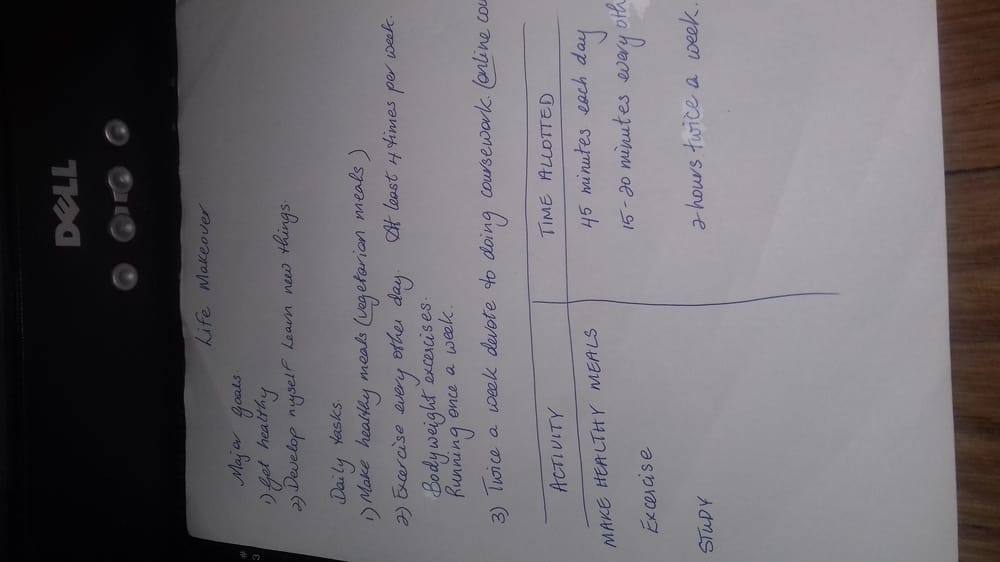 DELL
Life Makeover
Major goals.
1) Get healthy
2) Develop myself Learn new things.
Daily tasks.
1) Make healthy meals (vegetarian meals)
2) Excercise every other day. At least 4 times per week.
Bodyweight excercises.
Running once a week.
3) Twice a week devote to doing coursework. (online cou
ACTIVITY TIME ALLOTTED
MAKE HEALTHY MEALS 45 minutes each day
Excercise 15-20 minutes every oth
STUDY 2 hours twice a week.
#
3